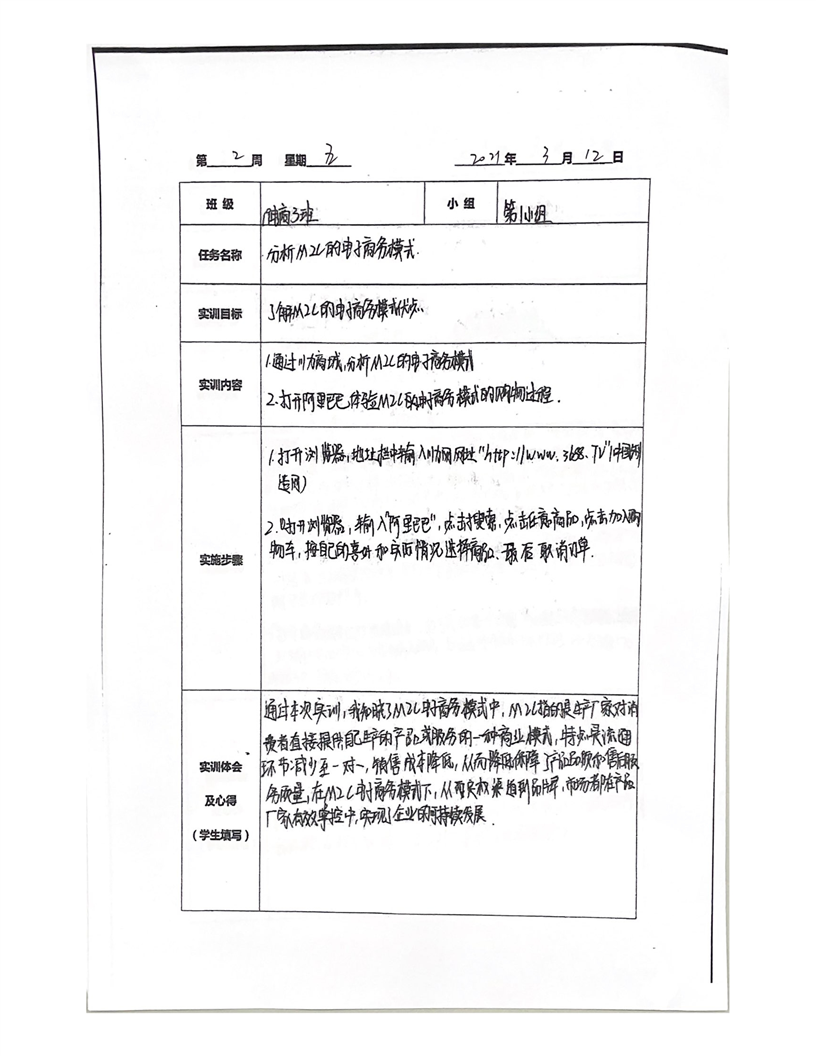 第 2 周 星期 五 2021 年 3 月 12 日
班 级 电商3班 小 组 第1小组
任务名称 分析M2C的电子商务模式.
实训目标 了解M2C的电子商务模式优点.
实训内容
1.通过 商城,分析M2C的电子商务模式
2.打开阿里巴巴,体验M2C的电子商务模式的购物过程.
实施步骤
1.打开浏览器,地址栏中输入 网网址"http://www.3688.TV"(中国制
造网)
2.打开浏览器,输入"阿里巴巴",点击搜索,点击任意商品,点击加入购
物车,按自己的喜好和实际情况选择商品.最后取消订单.
实训体会
及心得
(学生填写)
通过本次实训,我知晓了M2C电子商务模式中,M2C指的是生产厂家对消
费者直接提供自己生产的产品或服务的一种商业模式,特点是流通
环节减少至一对一,销售成本降低,从而 保障了产品品质和售后服
务质量,在M2C电子商务模式下,从 渠道到品牌,市场都在产品
厂家有效掌控中,实现了企业的可持续发展.